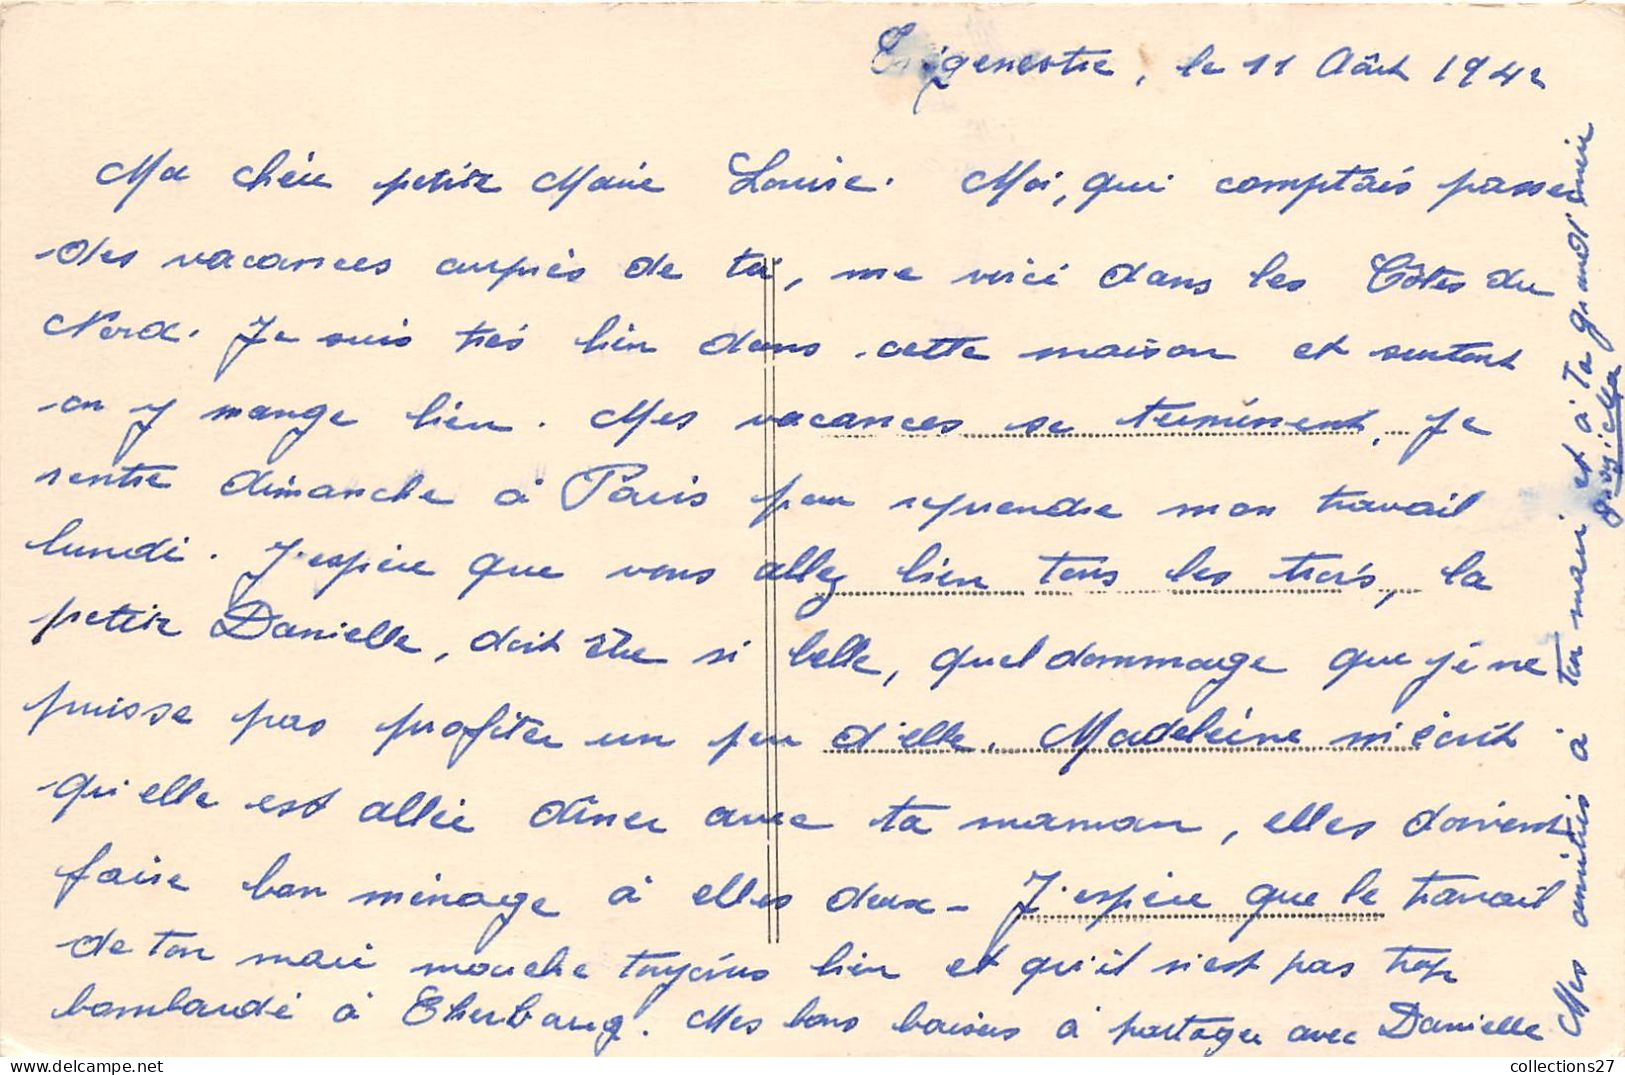 le 11 Août 1942
Ma chère petite Marie Louise. Moi, qui comptais passer
des vacances auprès de toi, me voici dans les Côtes du
Nord. Je suis très bien dans cette maison et surtout
on y mange bien. Mes vacances se terminent, je
rentre dimanche à Paris pour reprendre mon travail
lundi. J'espère que vous allez bien tous les trois, la
petite Danielle, doit être si belle, quel dommage que je ne
puisse pas profiter un peu d'elle. Madeleine m'écrit
qu'elle est allée dîner avec ta maman, elles doivent
faire bon ménage à elles deux - J'espère que le travail
de ton mari marche toujours bien et qu'il n'est pas trop
bombardé à Cherbourg. Mes bons baisers à partager avec Danielle
Mes amitiés à ton mari et à ta grand'mère
collections27